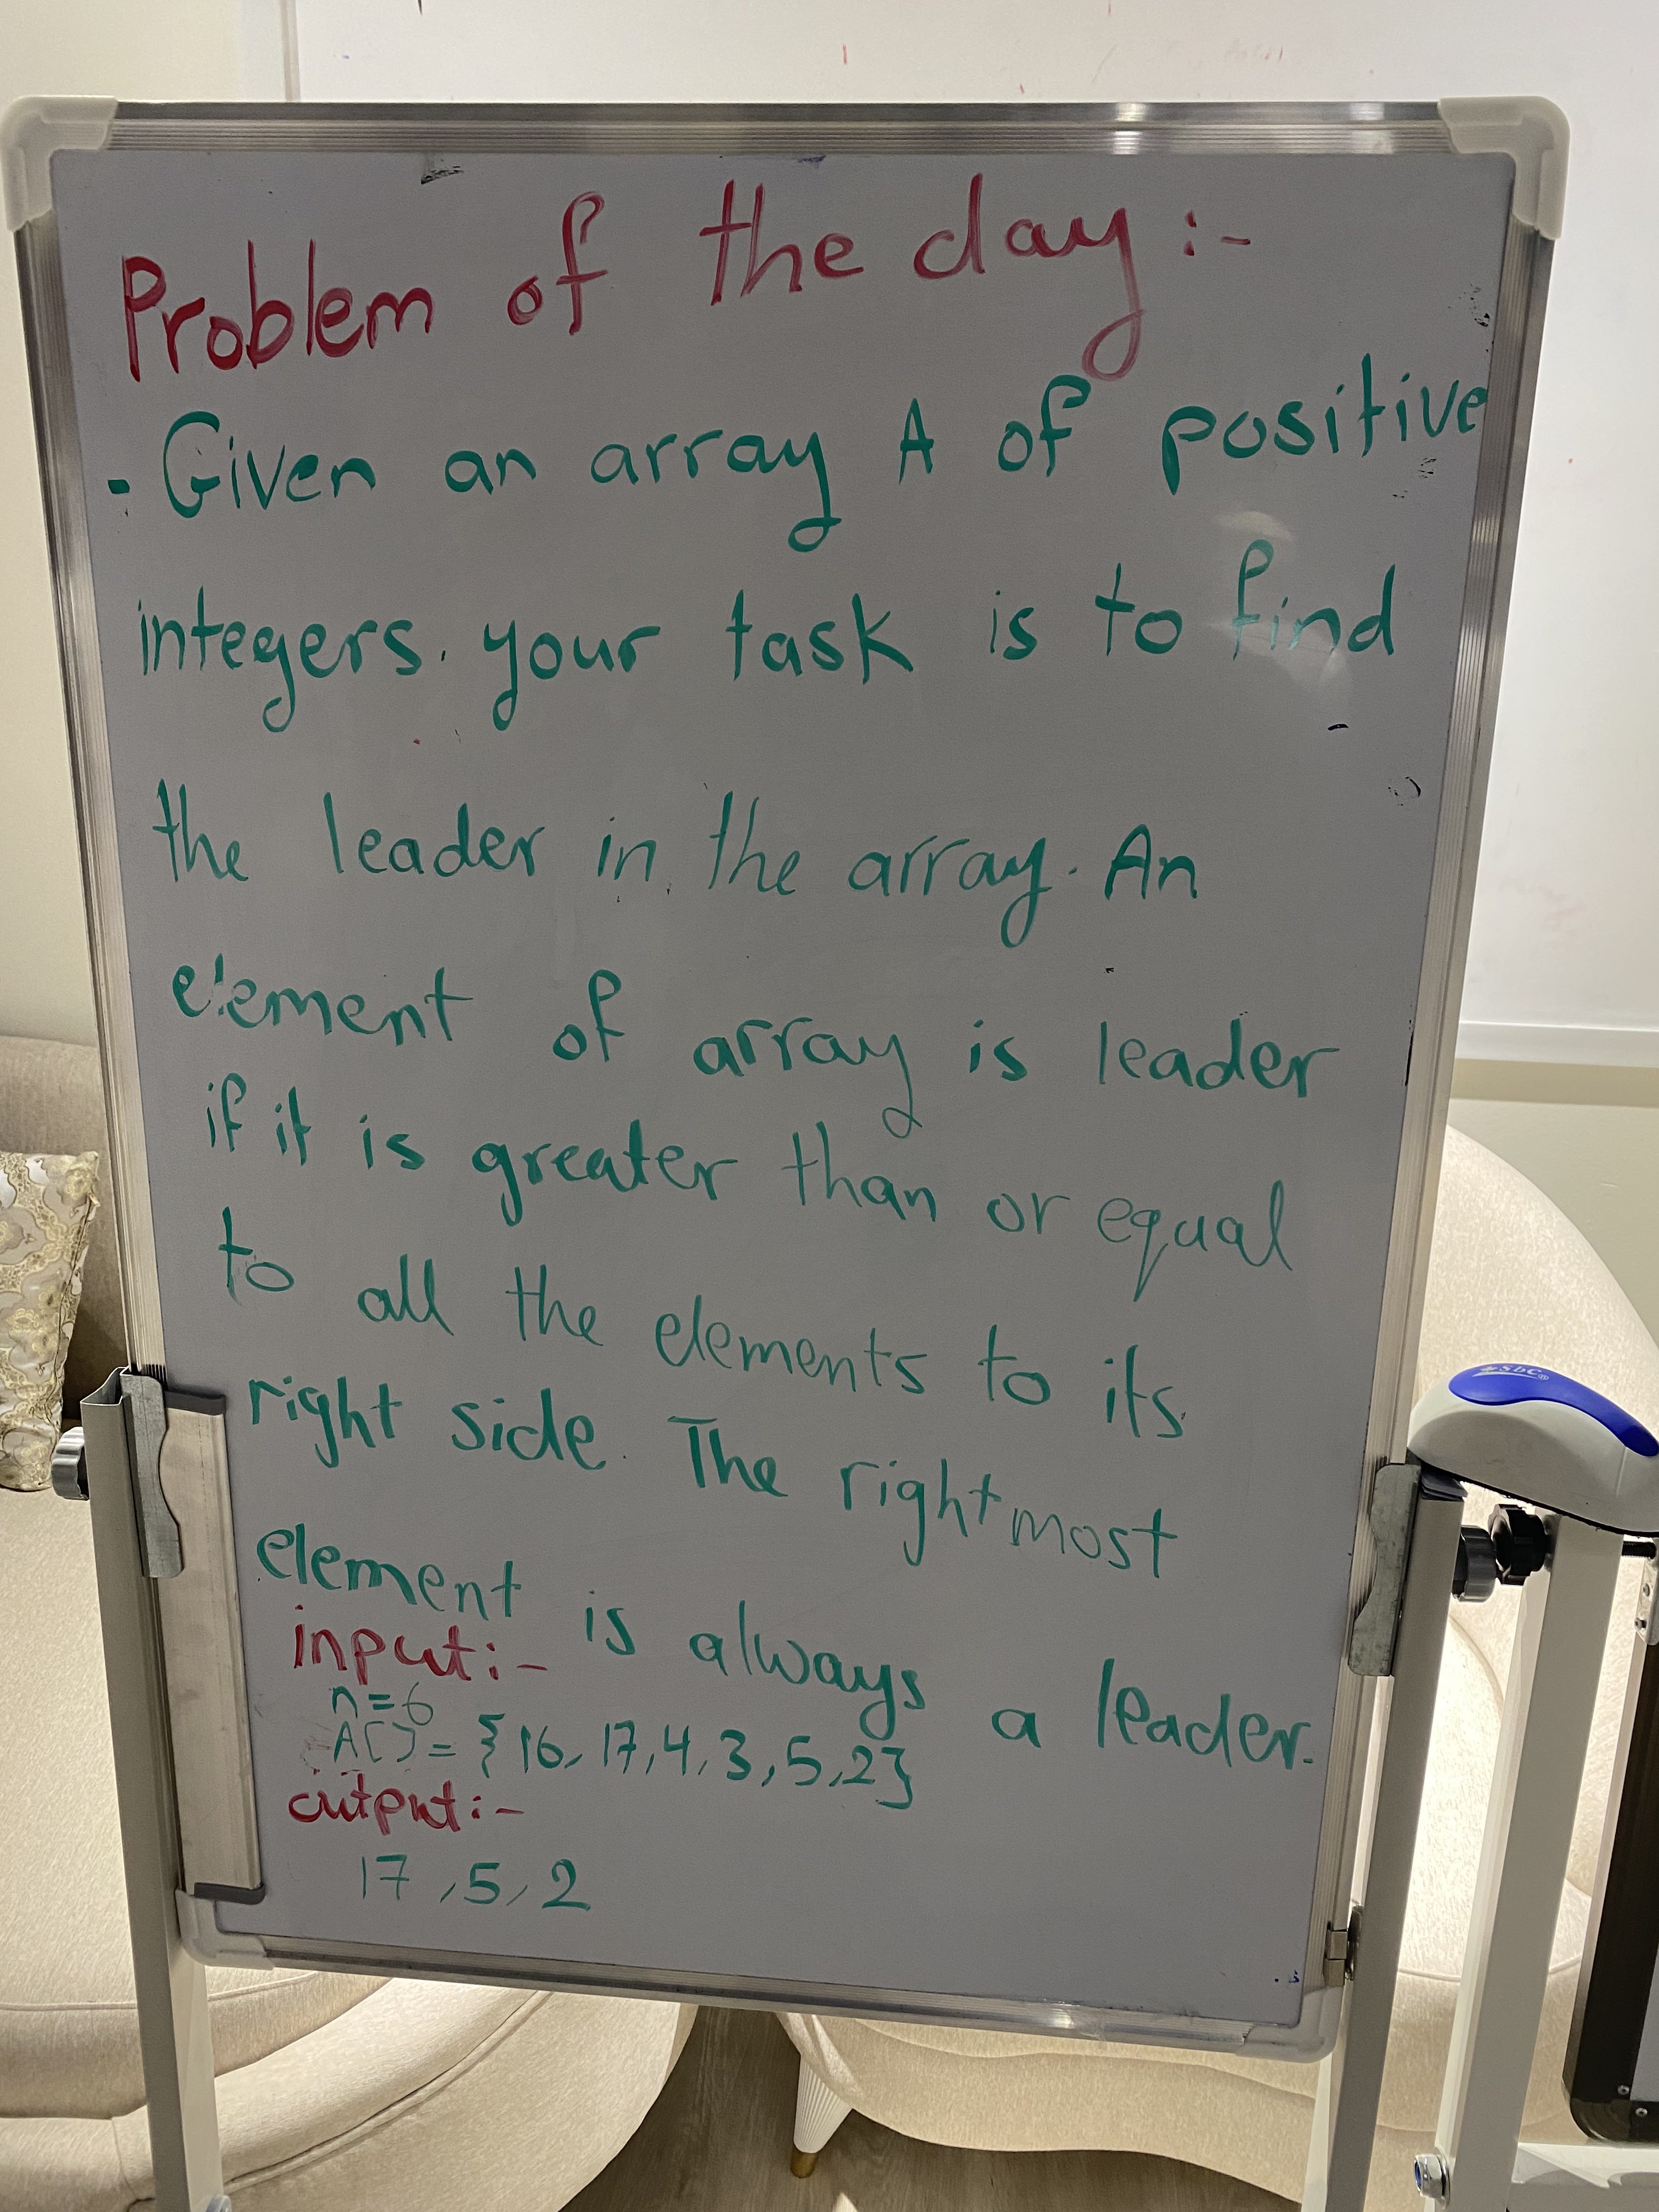 Problem of the day :-
- Given an array A of positive
integers. your task is to find
the leader in the array. An
element of array is leader
if it is greater than or equal
to all the elements to its
right side. The rightmost
element is always a leader.
input:-
n=6
A[] = {16, 17, 4, 3, 5, 2}
output:-
17, 5, 2
SbC®